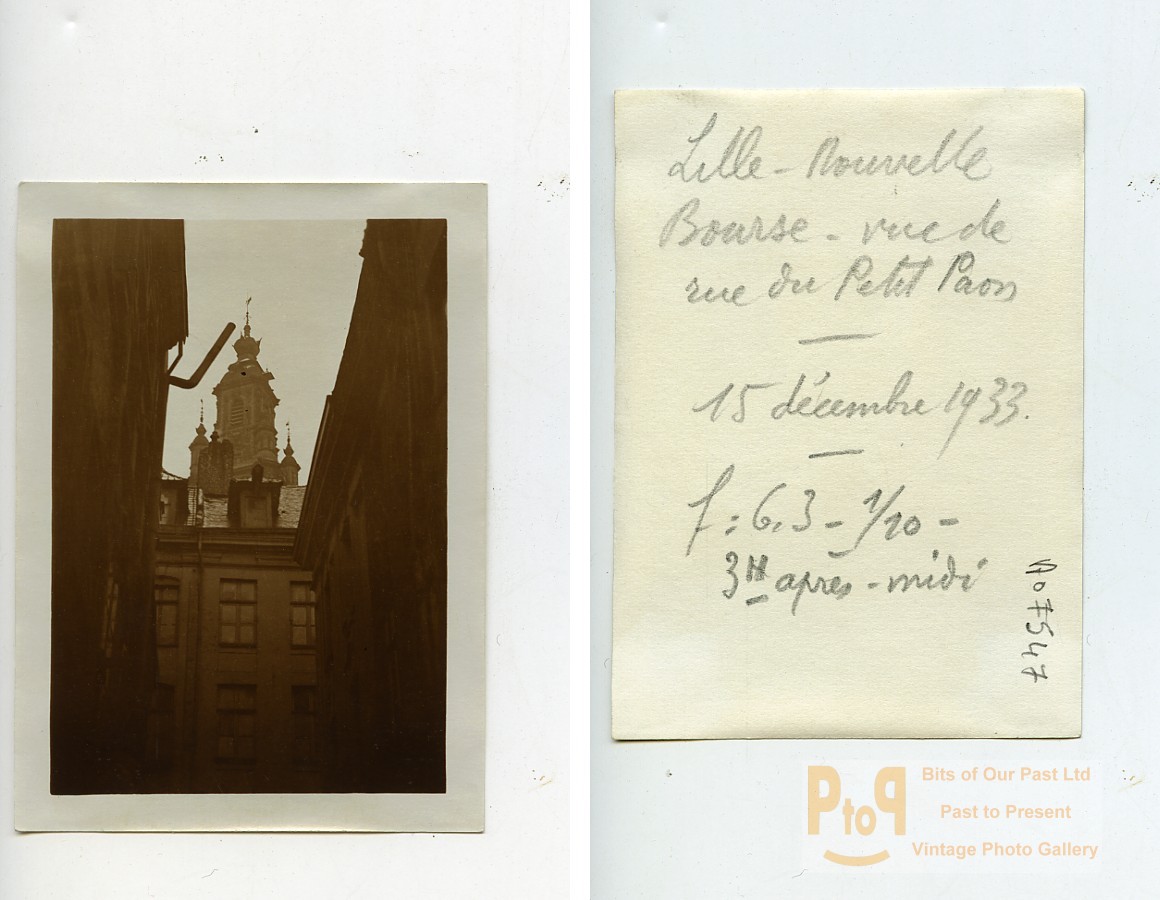 Lille - Nouvelle
Bourse - vue de
rue du Petit Paon
15 décembre 1933.
f: 6.3 - 1/10 -
3H après-midi
A07547
PtoP
Bits of Our Past Ltd
Past to Present
Vintage Photo Gallery